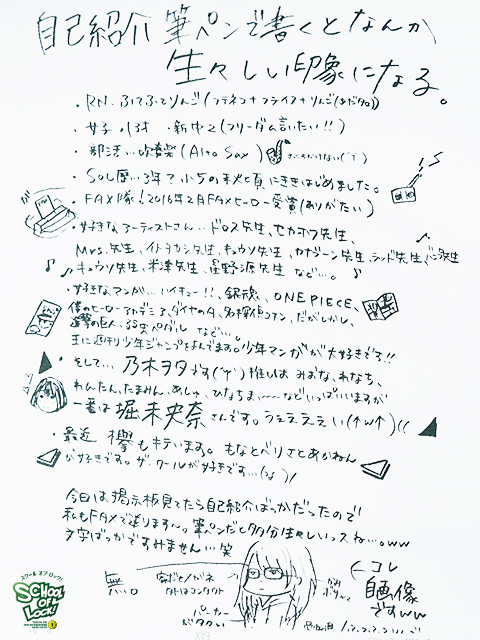 自己紹介 筆ペンで書くとなんか
生々しい印象になる。
・RN. ふてふてりんご(
・女子 ・13才 ・新中2(フリーダム言いたい!!)
・部活…吹奏楽(Alto Sax)
・SOL歴…3年?小5の秋頃にききはじめました。
・FAX隊!2016年2月FAXヒーロー受賞(ありがたい)
・好きなアーティストさん…ドロス先生、セカオワ先生、
Mrs.先生、イトヲカシ先生、キュウソ先生、カナブーン先生、ラッド先生、バンプ先生
キュウソ先生、米津先生、星野源先生 など…。
・好きなマンガ…ハイキュー!!、銀魂、ONE PIECE、
僕のヒーローアカデミア、ダイヤのA、名探偵コナン、だがしかし、
進撃の巨人、弱虫ペダル など…。
主に週刊少年ジャンプをよんでます。少年マンガが大好きです!!
・そして… 乃木ヲタです 推しは みおな、わなち、
れんたん、たまみん、あしゅ、ひなちま、〜〜などいっぱいいますが
一番は 堀未央奈 さんです。うぇえええい(↑w↑)
・最近 欅もキテいます。もなとべりさとあかねん
が好きです。ザ・クールが好きです…
今日は掲示板見てたら自己紹介ばっかだったので
私もFAXで送ります〜。筆ペンだと多分生々しいっスね…。ww
文字ばっかですみません…笑
無。
家だとメガネ
外はコンタクト
パーカー
←コレ
自画像
ですww
スクール オブ ロック!
SCHOOL OF LOCK!